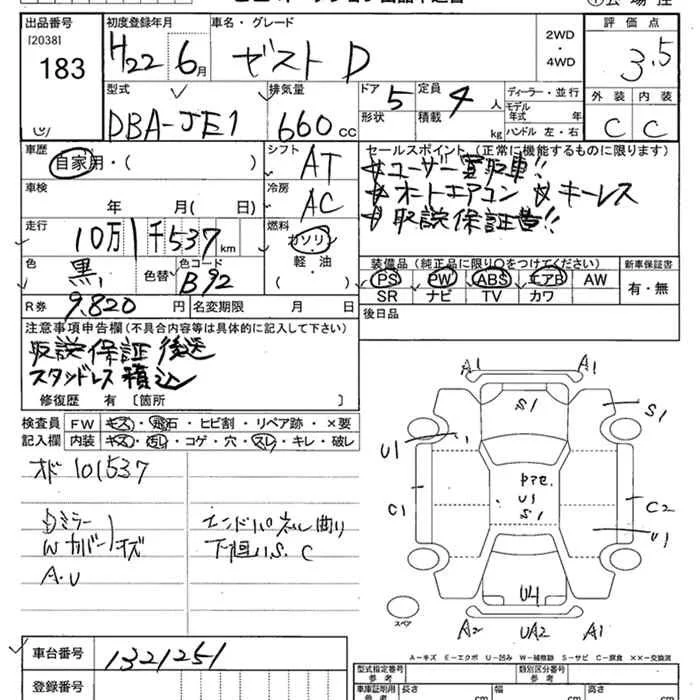 出品番号 初度登録年月 車名・グレード 評価点
[2038]
183 H22 6月 ゼスト D 2WD・4WD 3.5
型式 排気量 ドア 定員 ディーラー・並行 外装 内装
DBA-JE1 660cc 5 4人 モデル年式 年式
形状 積載 kg ハンドル 左・右 C C
車歴 シフト セールスポイント (正常に機能するものに限ります)
自家用・( ) AT ユーザー買取車!!
車検 冷房 オートエアコン キーレス
年 月(日) AC 取説保証書!!
走行 燃料
10万1千537km ガソリン
軽・油
( )
色 色替 色コード 装備品(純正品に限り○をつけてください) 新車保証書
黒 B92 PS PW ABS エアB AW 有・無
SR ナビ TV カワ
R券 9,820円 名変期限 月 日 後日品
注意事項申告欄(不具合内容等は具体的に記入して下さい)
取説保証後送
スタッドレス積込
修復歴 有 〔箇所 〕
検査員 FW キズ・飛石・ヒビ割・リペア跡・×要
記入欄 内装 キズ・汚レ・コゲ・穴・スレ・キレ・破レ
オド 101537
Wカバーキズ 下回りS.C
A.U
A1 A1
S1 S1
U1
C1 U1 S1 C2
U1
U4
スペア
A2 UA2 A1
A-キズ E-エクボ U-凹み W-補修跡 S-サビ C-腐食 ××-交換済
車台番号 1321251 型式指定番号 類別区分番号
参考 参考
登録番号 車庫証明用 長さ 幅 高さ
参考 cm cm cm